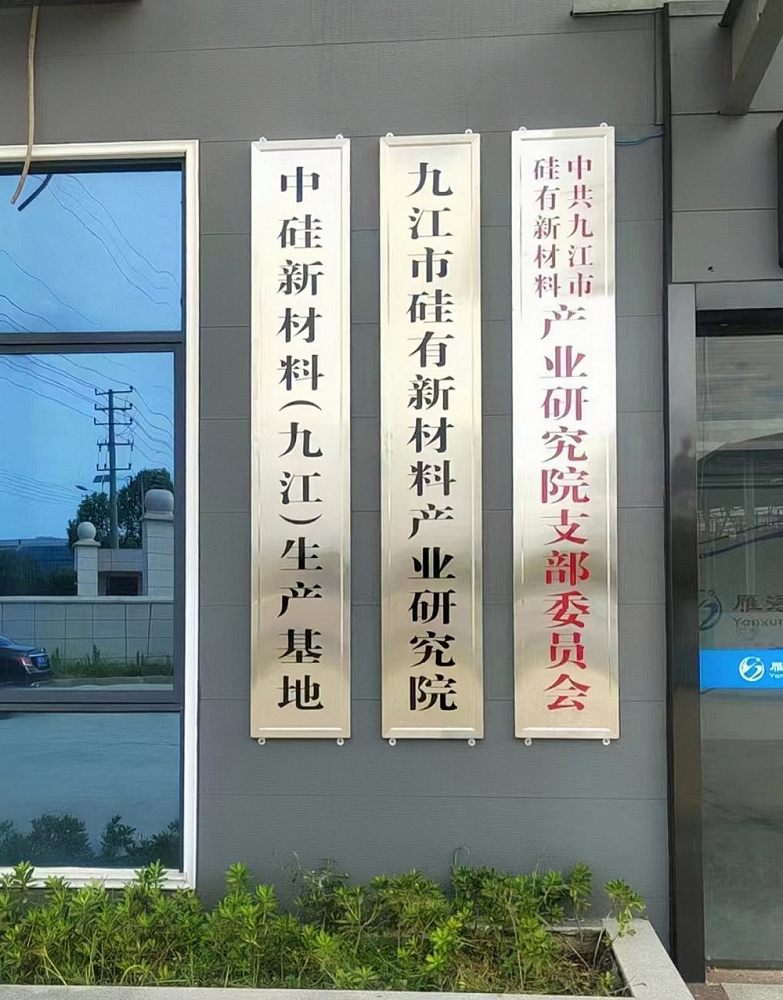 中硅新材料(九江)生产基地
九江市硅有新材料产业研究院
中共九江市
硅有新材料
产业研究院支部委员会
雁
Yanxun
雁